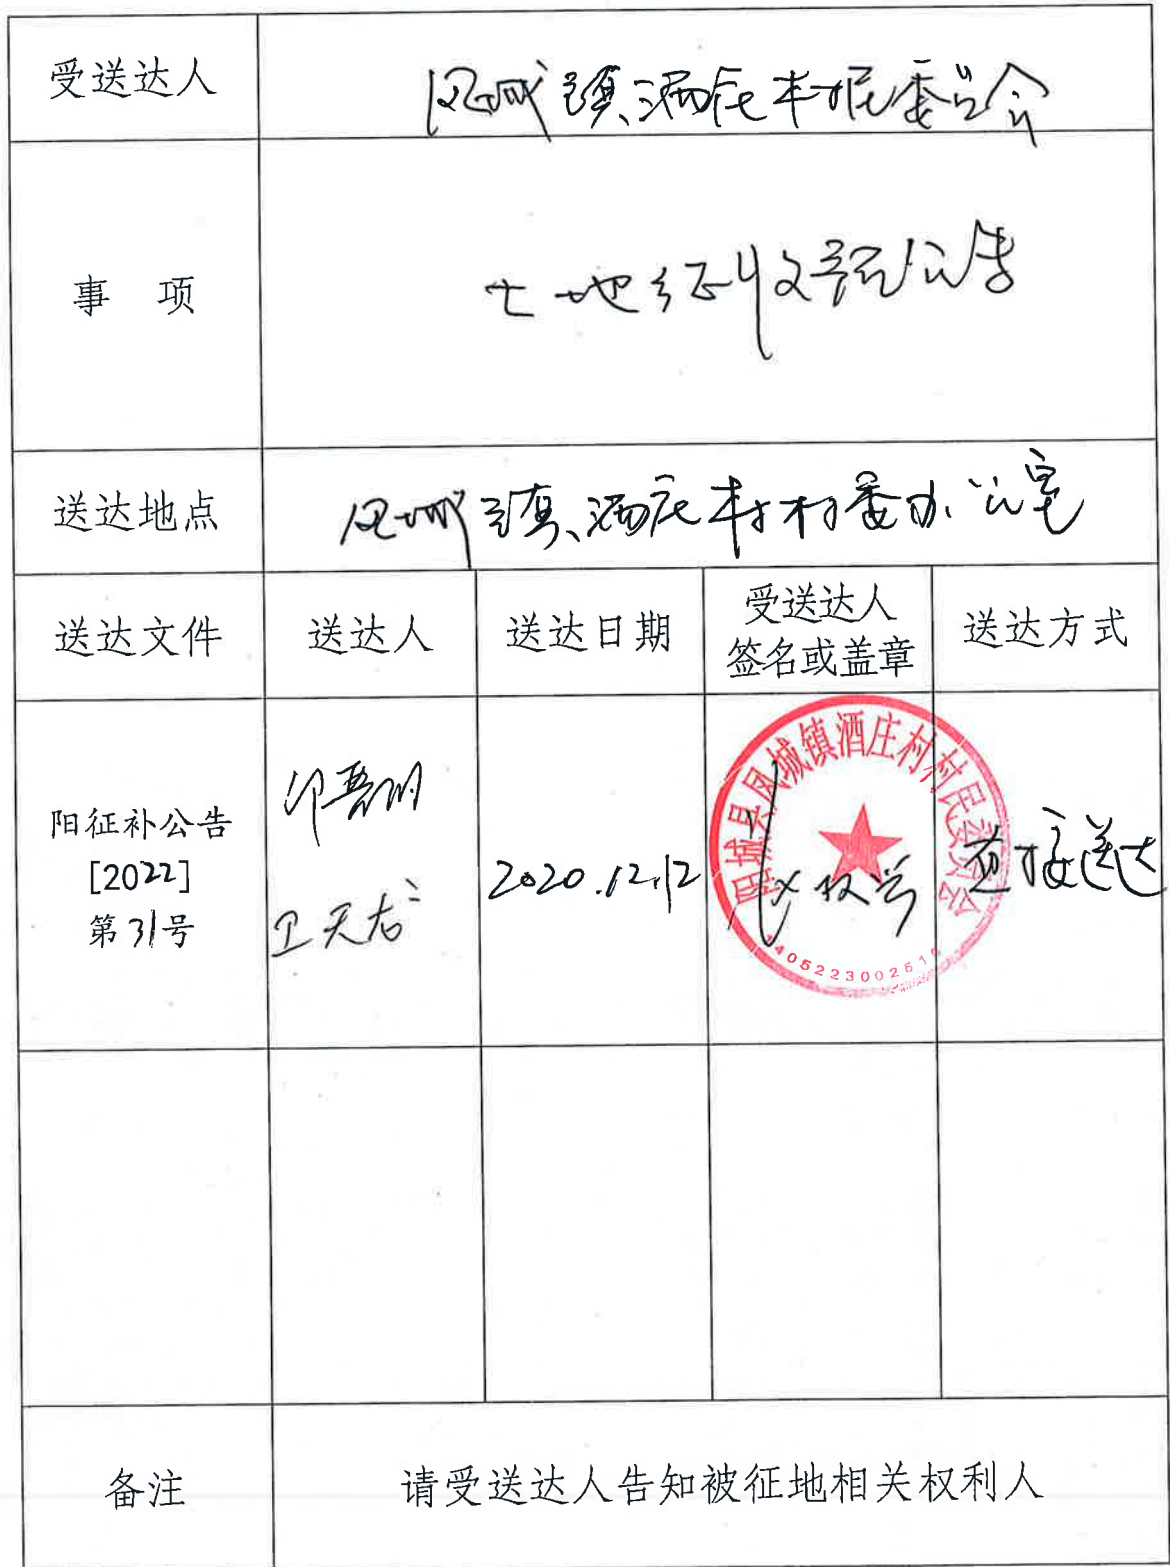 受送达人
凤城镇酒庄村民委员会
事 项
土地征收预公告
送达地点
凤城镇酒庄村村委办公室
送达文件
送达人
送达日期
受送达人
签名或盖章
送达方式
阳征补公告
[2022]
第31号
卫天右
2020.12.12
阳城县凤城镇酒庄村村民委员会
直接送达
备注
请受送达人告知被征地相关权利人